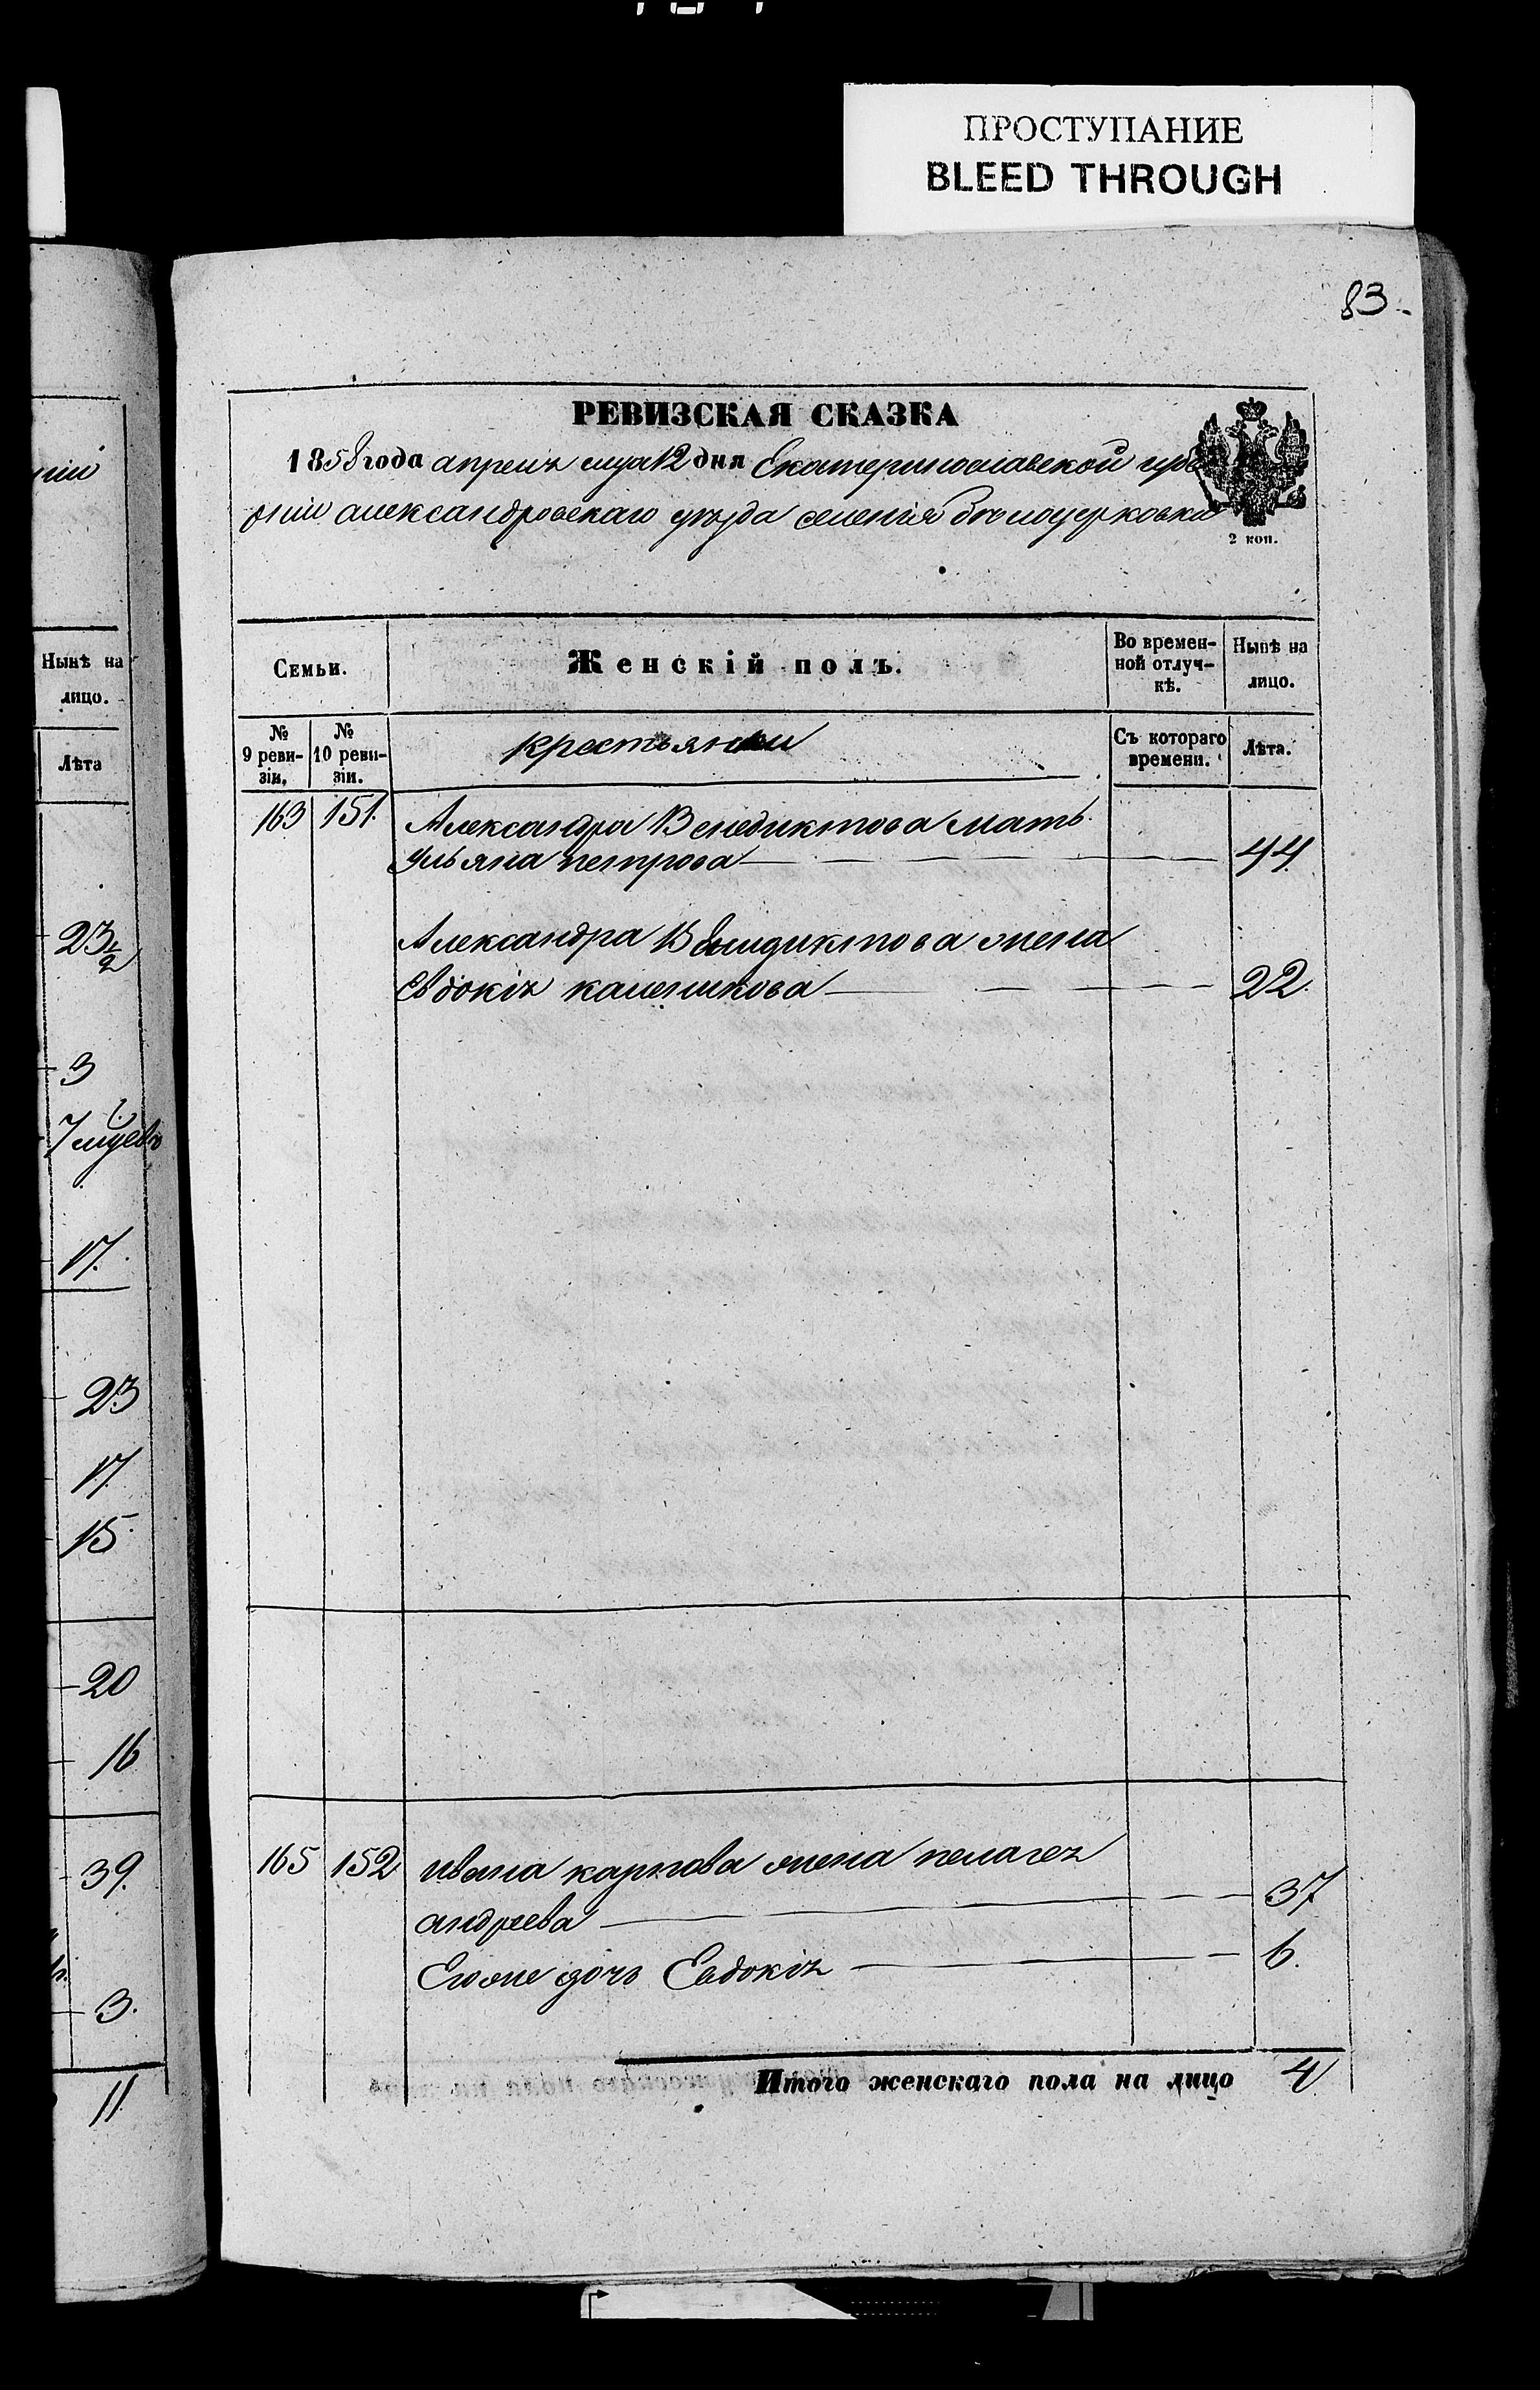 ПРОСТУПАНИЕ
BLEED THROUGH
83
РЕВИЗСКАЯ СКАЗКА
1858 года апреля мца 12 дня Екатеринославской губе
рніи александровскаго уѣзда селенія бѣлоцерковки
2 коп.
Семьи.
Женскій полъ.
Во времен-
ной отлуч-
кѣ.
Нынѣ на
лицо.
№
9 реви-
зіи.
№
10 реви-
зіи.
крестьянки
Съ котораго
времени.
Лѣта.
163 151. Александра Венедиктова мать
Ульяна петрова 44
Александра Венидиктова жена
Евдокія 22.
165 152 ивана карпова жена пелагея
андреева 37
Егоже дочь Евдокія 6.
Итого женскаго пола на лицо 4
ніи
Нынѣ на
лицо.
Лѣта
23½
3
7 мцевъ
17.
23
17
15
20
16
39.
3.
11